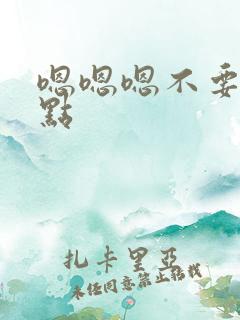 嗯嗯嗯不要
點
扎卡里亞
未经同意禁止转载